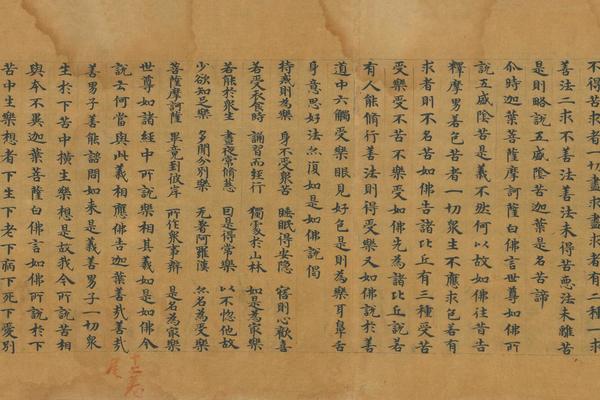 不得苦求者一切盡求盡求者有二種一
善法二求不善法善法未得苦惡法未離苦
是則略說五盛陰苦迦葉是名苦諦
尒時迦葉菩薩摩訶薩白佛言世尊如佛所
說五盛陰苦是義不然何以故如佛往昔告
釋摩男若色苦者一切眾生不應求色若有
求者則不名苦如佛告諸比丘有三種受苦
受樂受不苦不樂受如佛先為諸比丘說若
有人能脩行善法則得受樂又如佛說於善
道中六觸受樂眼見好色是則為樂耳鼻舌
身意思好法亦復如是如佛說偈
持戒則為樂 身不受眾苦 睡眠得安隱 寤則心歡喜
若受衣食時 誦習而經行 獨處於山林 如是為最樂
若能於眾生 晝夜常脩慈 因是得常樂 以不惱他故
少欲知足樂 多聞分別樂 无著阿羅漢 亦名為受樂
菩薩摩訶薩 畢竟到彼岸 所作眾事辦 是名為最樂
世尊如諸經中所說樂相其義如是如佛今
說云何當與此義相應佛告迦葉善哉善哉
善男子善能諮問如來是義善男子一切眾
生於下苦中橫生樂想是故我今所說苦相
與本不異迦葉菩薩白佛言如佛所說於下
苦中生樂想者下生下老下病下死下愛別